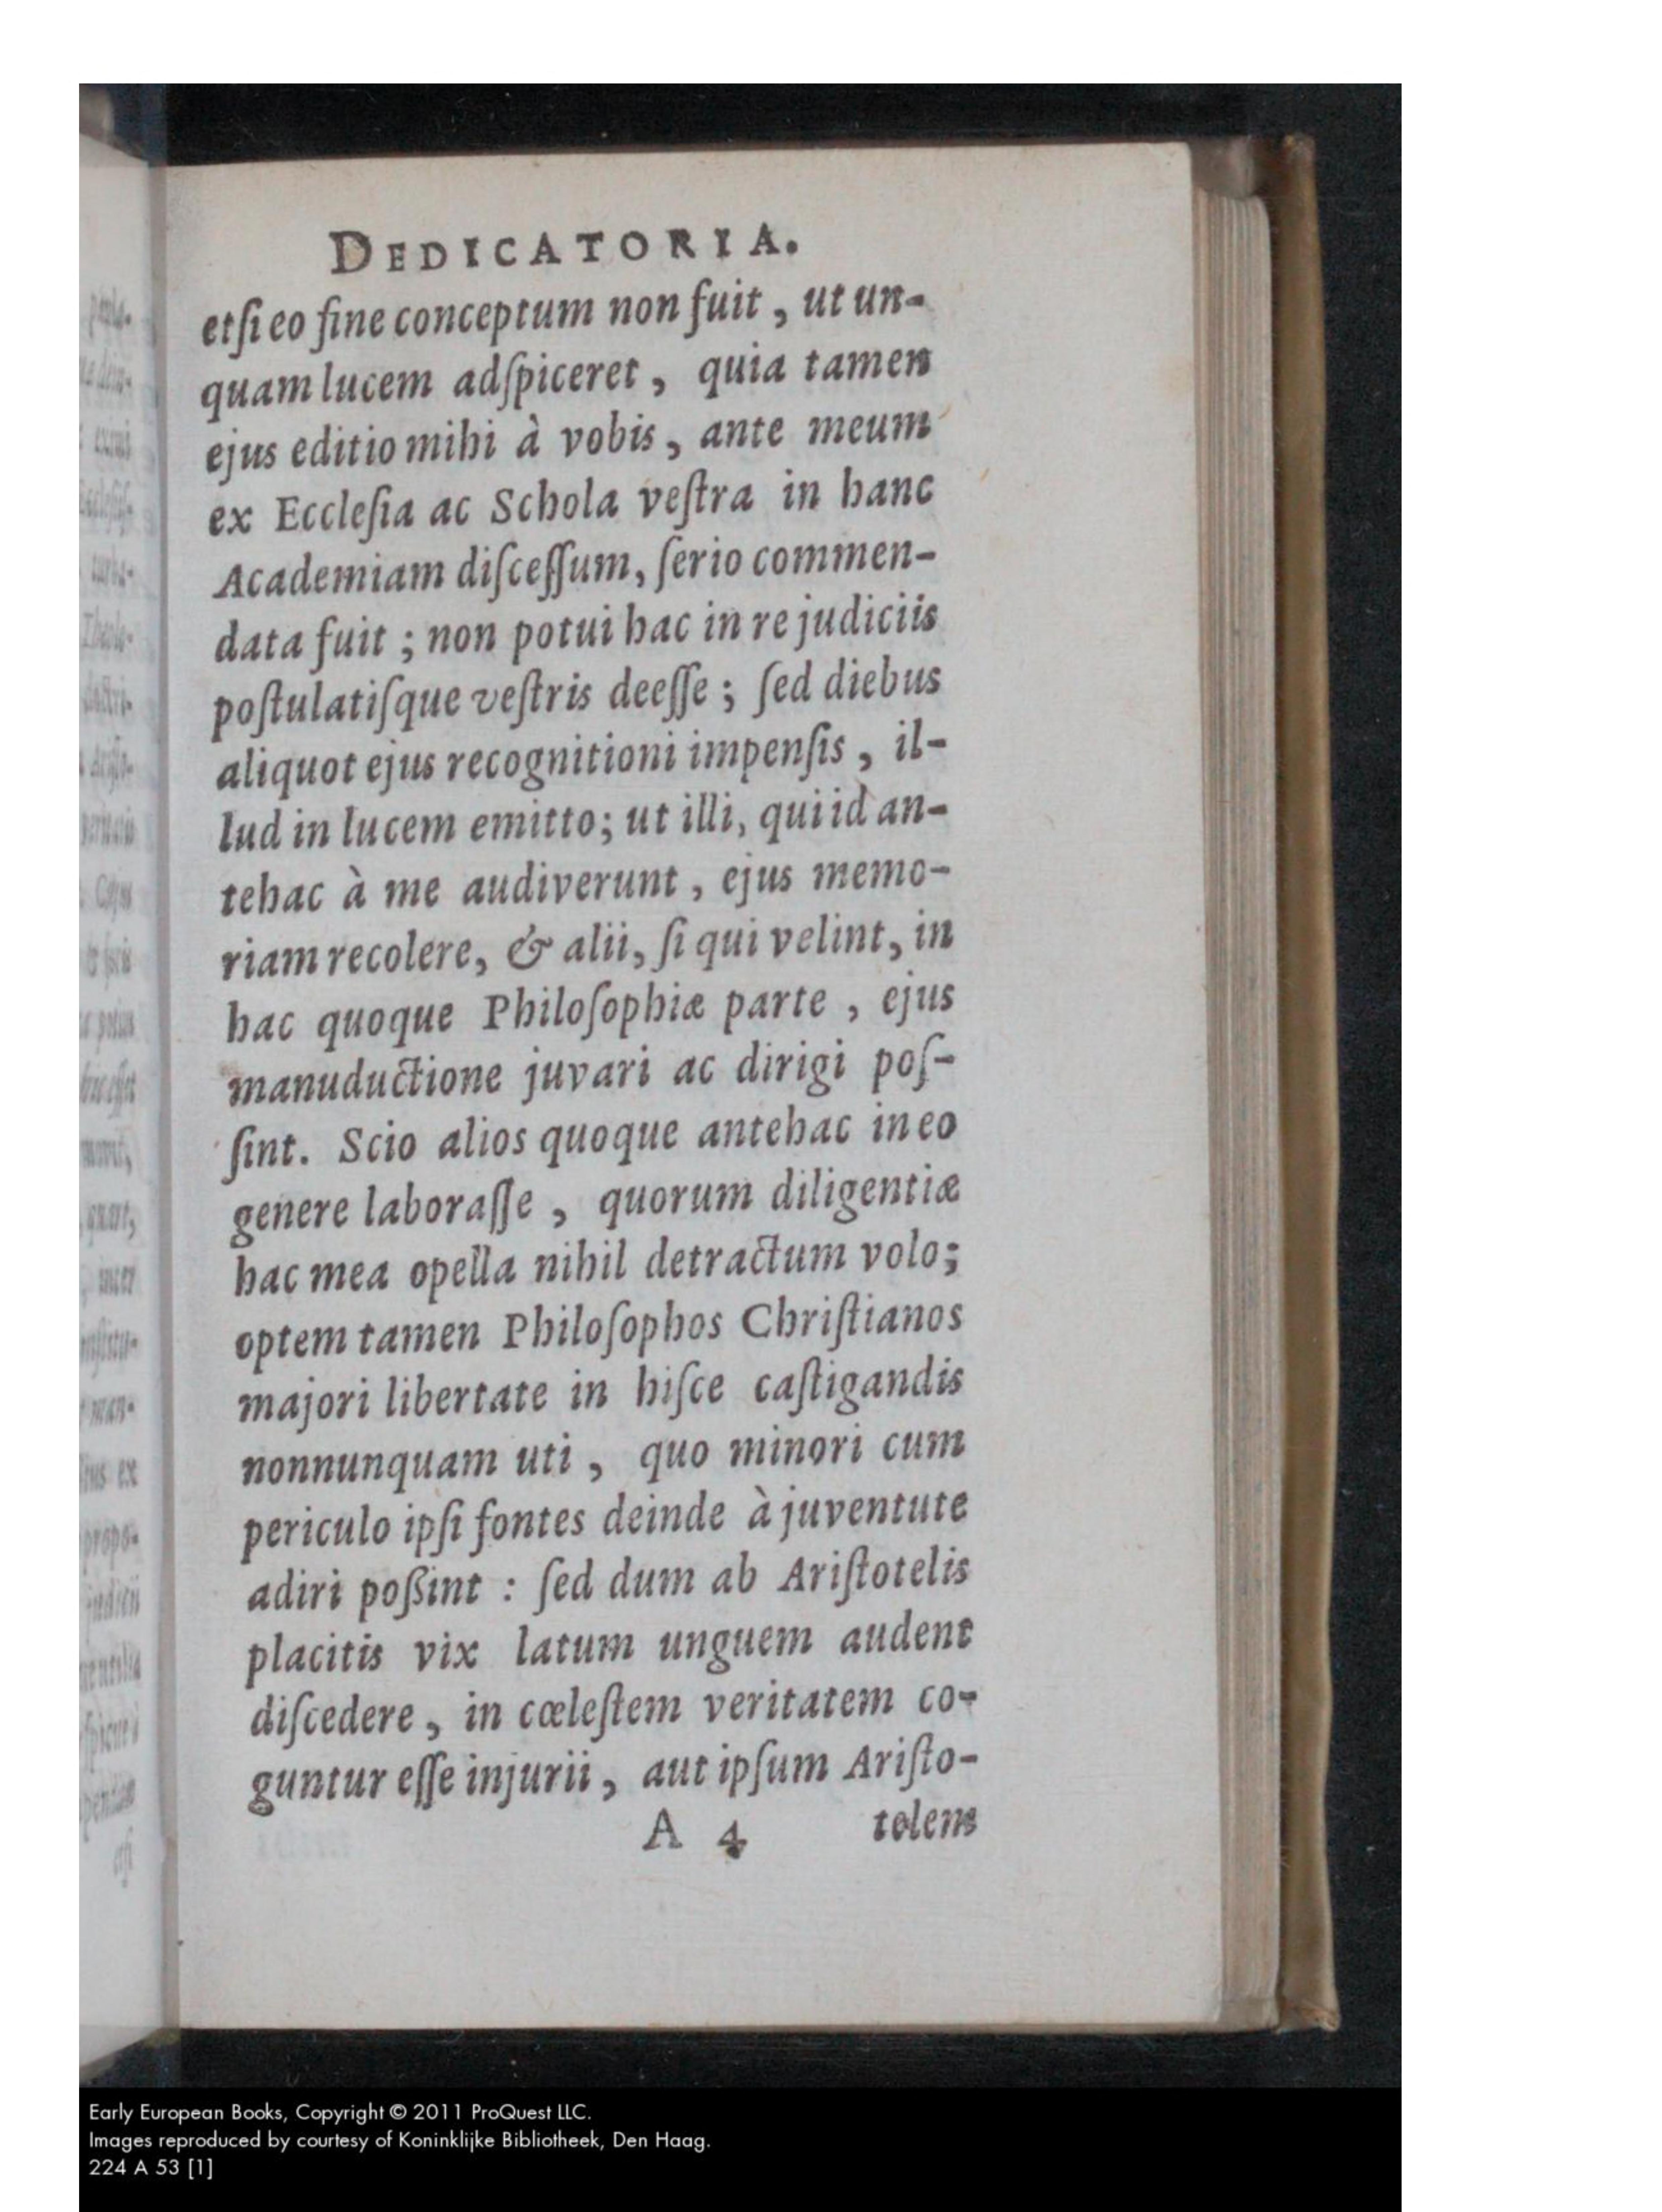 DEDICATORIA.
etſi eo fine conceptum non fuit, ut un-
quam lucem adſpiceret, quia tamen
ejus editio mihi à vobis, ante meum
ex Eccleſia ac Schola veſtra in hanc
Academiam diſceſſum, ſerio commen-
data fuit; non potui hac in re judiciis
poſtulatiſque veſtris deeſſe; ſed diebus
aliquot ejus recognitioni impenſis, il-
lud in lucem emitto; ut illi, qui id an-
tehac à me audiverunt, ejus memo-
riam recolere, & alii, ſi qui velint, in
hac quoque Philoſophiæ parte, ejus
manuductione juvari ac dirigi poſ-
ſint. Scio alios quoque antehac in eo
genere laboraſſe, quorum diligentiæ
hac mea opella nihil detractum volo;
optem tamen Philoſophos Chriſtianos
majori libertate in hiſce caſtigandis
nonnunquam uti, quo minori cum
periculo ipſi fontes deinde à juventute
adiri poßint: ſed dum ab Ariſtotelis
placitis vix latum unguem audent
diſcedere, in cœleſtem veritatem co-
guntur eſſe injurii, aut ipſum Ariſto-
A 4 telem
Early European Books, Copyright © 2011 ProQuest LLC.
Images reproduced by courtesy of Koninklijke Bibliotheek, Den Haag.
224 A 53 [1]